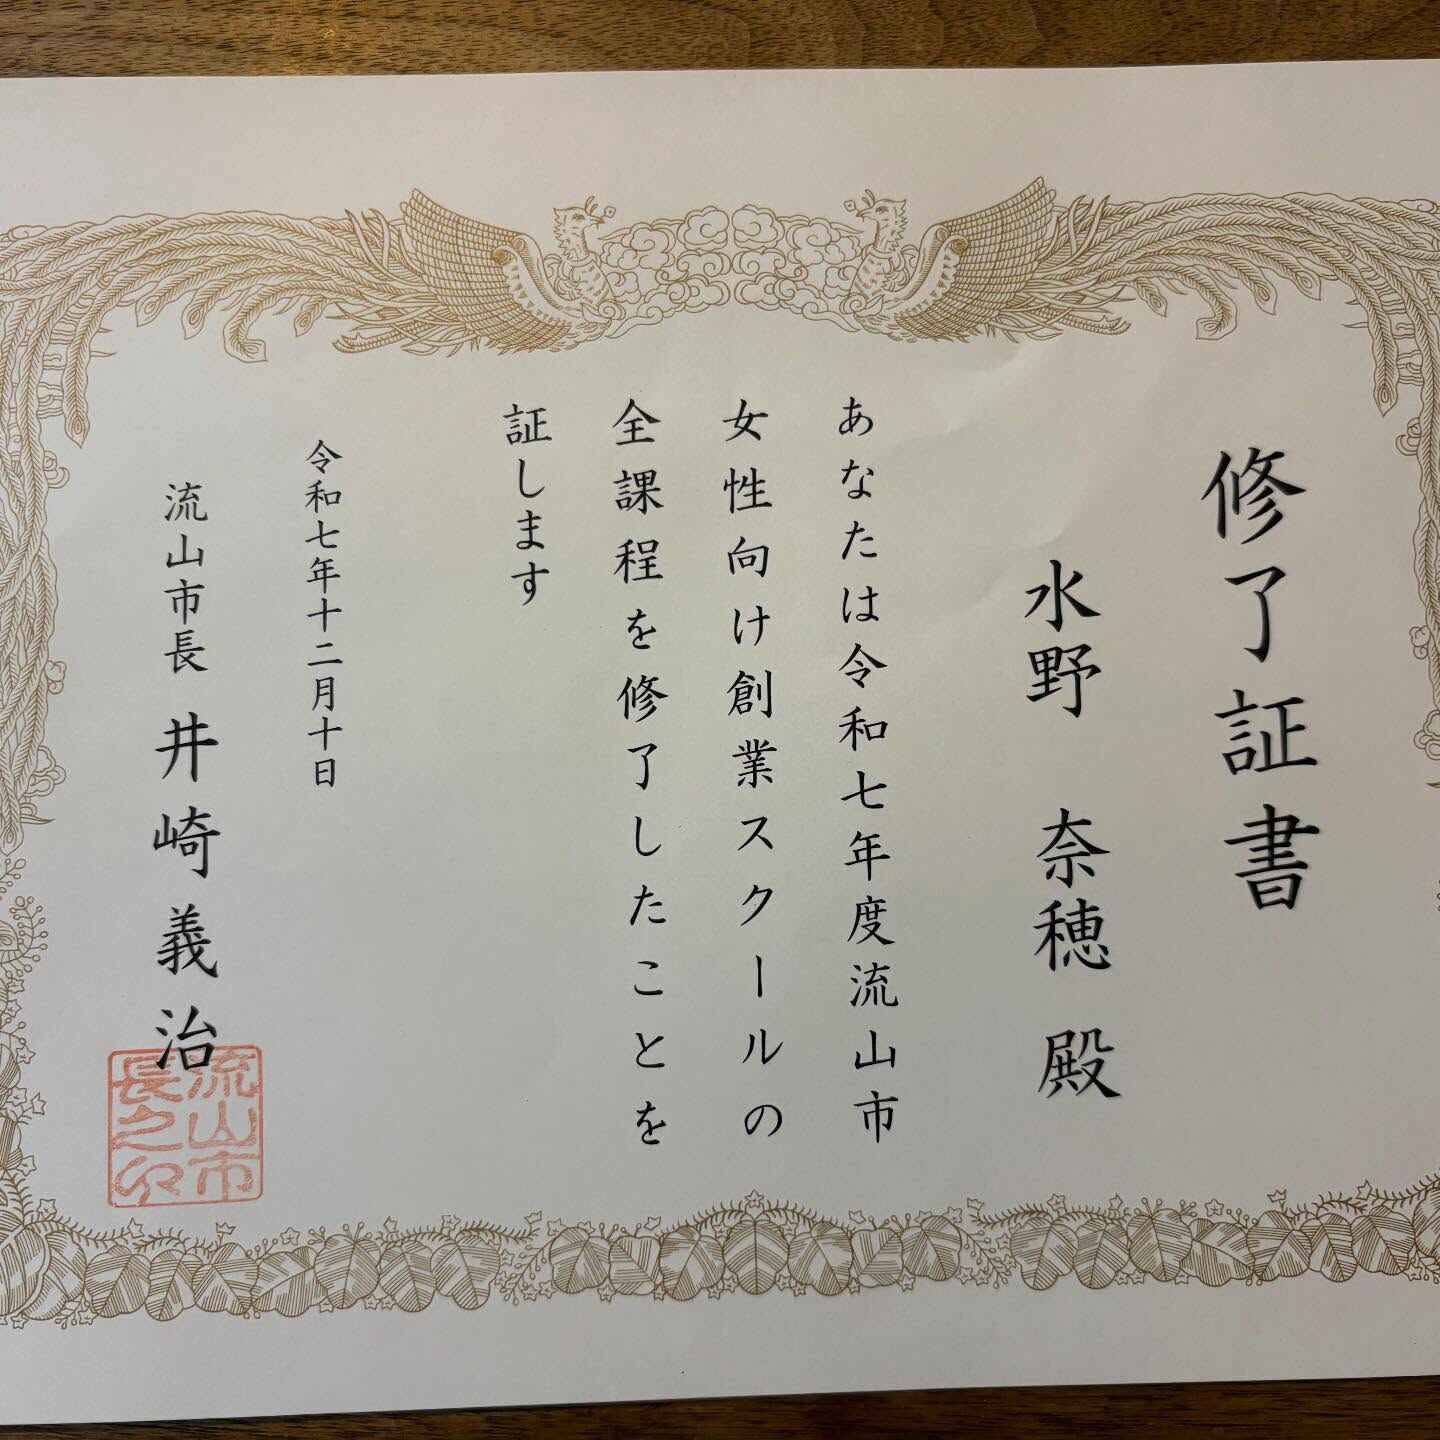 修了証書
水野 奈穂 殿
あなたは令和七年度流山市
女性向け創業スクールの
全課程を修了したことを
証します
令和七年十二月十日
流山市長 井崎義治
流山市
長之印